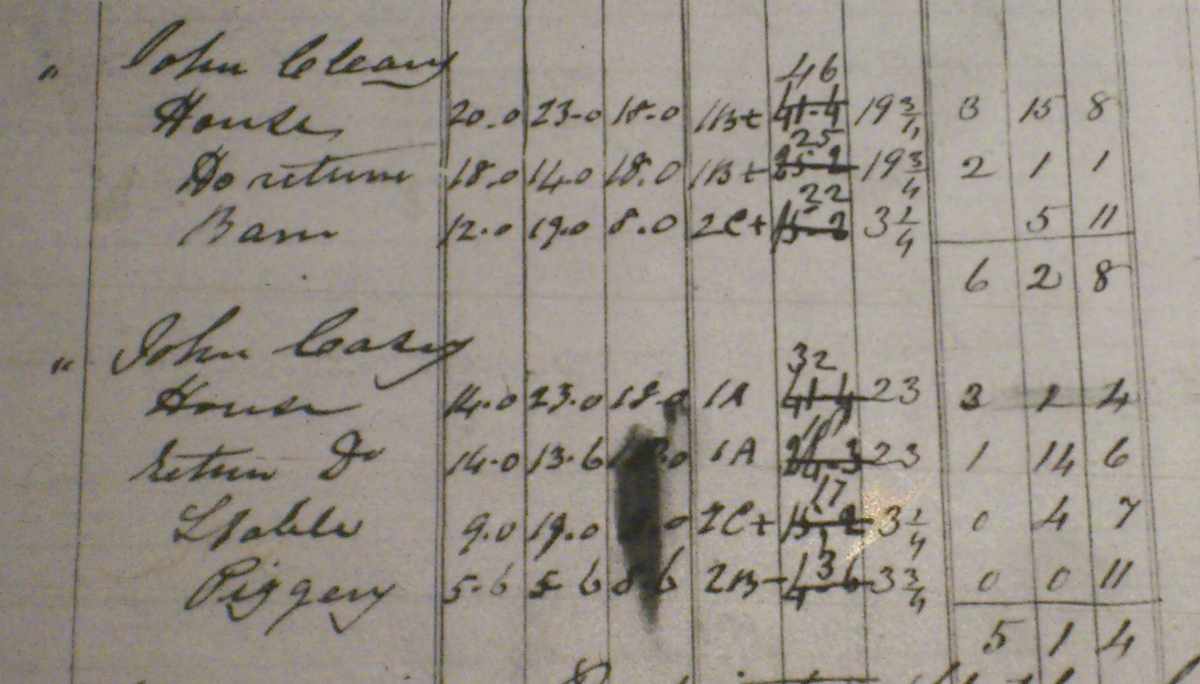 " John Cleary
46
House 20.0 23.0 18.0 1B+ 41-4 19 3/4 3 15 8
25
Do return 18.0 14.0 18.0 1B+ 25-2 19 3/4 2 1 1
22
Barn 12.0 19.0 8.0 2C+ 3 1/4 5 11
6 2 8
" John Casey
32
House 14.0 23.0 18.0 1A 41-4 23 3 1 4
return Do 14.0 13.6 1A 23 1 14 6
17
Stable 9.0 19.0 2C+ 3 1/4 0 4 7
3
Piggery 5.6 5.6 6 2B- 3 3/4 0 0 11
5 1 4